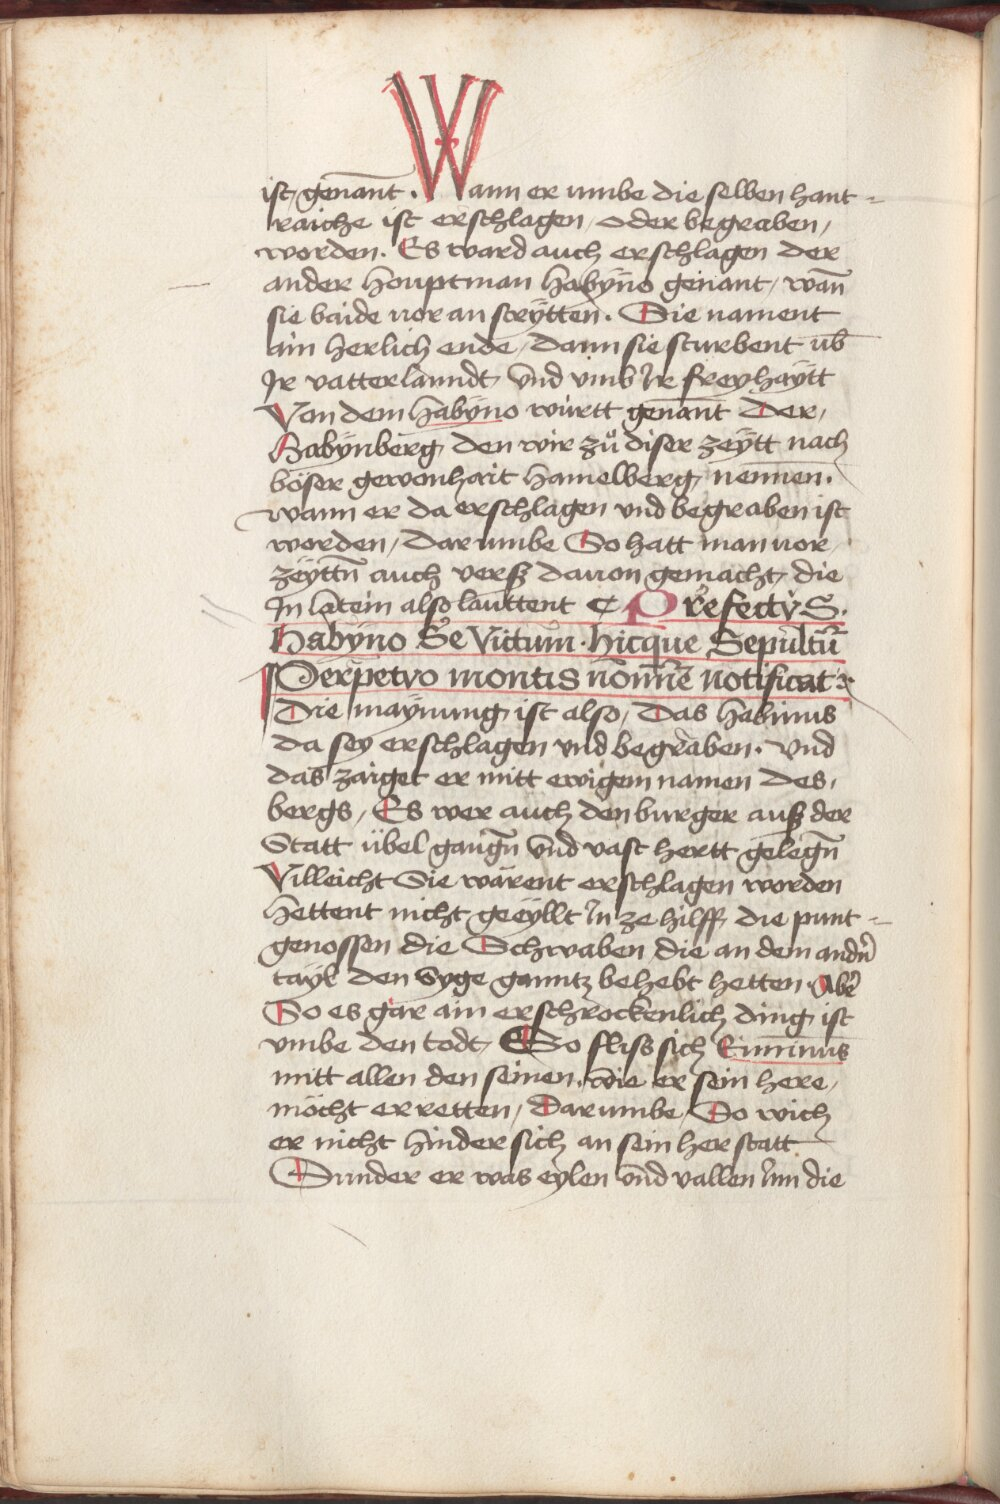 ist genañt . Wann er umbe die selben hant=
raiche ist erschlagen / oder begraben /
worden. Es ward auch erschlagen der
ander houptman habÿno genant / wañ
sie baide vor an scrÿtten. Sie nament
ain herlich ende / dann sie sturbent ub̄
Ir vatterlanndt und umb Ir freyhaÿtt
Von dem habÿno württ genannt Der /
Habÿnberg den wir zů diser zeÿtt nach
böser gewonhait hamelberg nennen.
wann er da erschlagen und begraben ist
worden / Dar umbe So hatt man vor
zeÿttñ auch verß dauon gemacht / die
In latein also lauttent ¢ Prefectv̄S.
Habÿno Se Victum · hicque Sepultū
Perpetvo montis nom̄ne notificat
Die maÿnung ist also / Das habinus
da sey erschlagen und begraben. und
das zaiget er mitt ewigem namen des
bergs / Es wer auch den burger auß der
Statt übel gangñ und vast hertt gelegñ
Villeicht Sie wärent erschlagen worden
hettent nicht geeÿllt In ze hilff die punt=
genossen die Schwaben die an dem andn̄
tayl den Syge ganntz behebt hetten. Abr̄
So es gar ain erschrockenlich ding ist
umbe den todt / So fliss sich
mitt allen den seinen. wie er sein here /
möcht erretten / Darumbe So wich
er nicht hinder sich an sein her statt
Sunder er was eylen und vallen Inn die